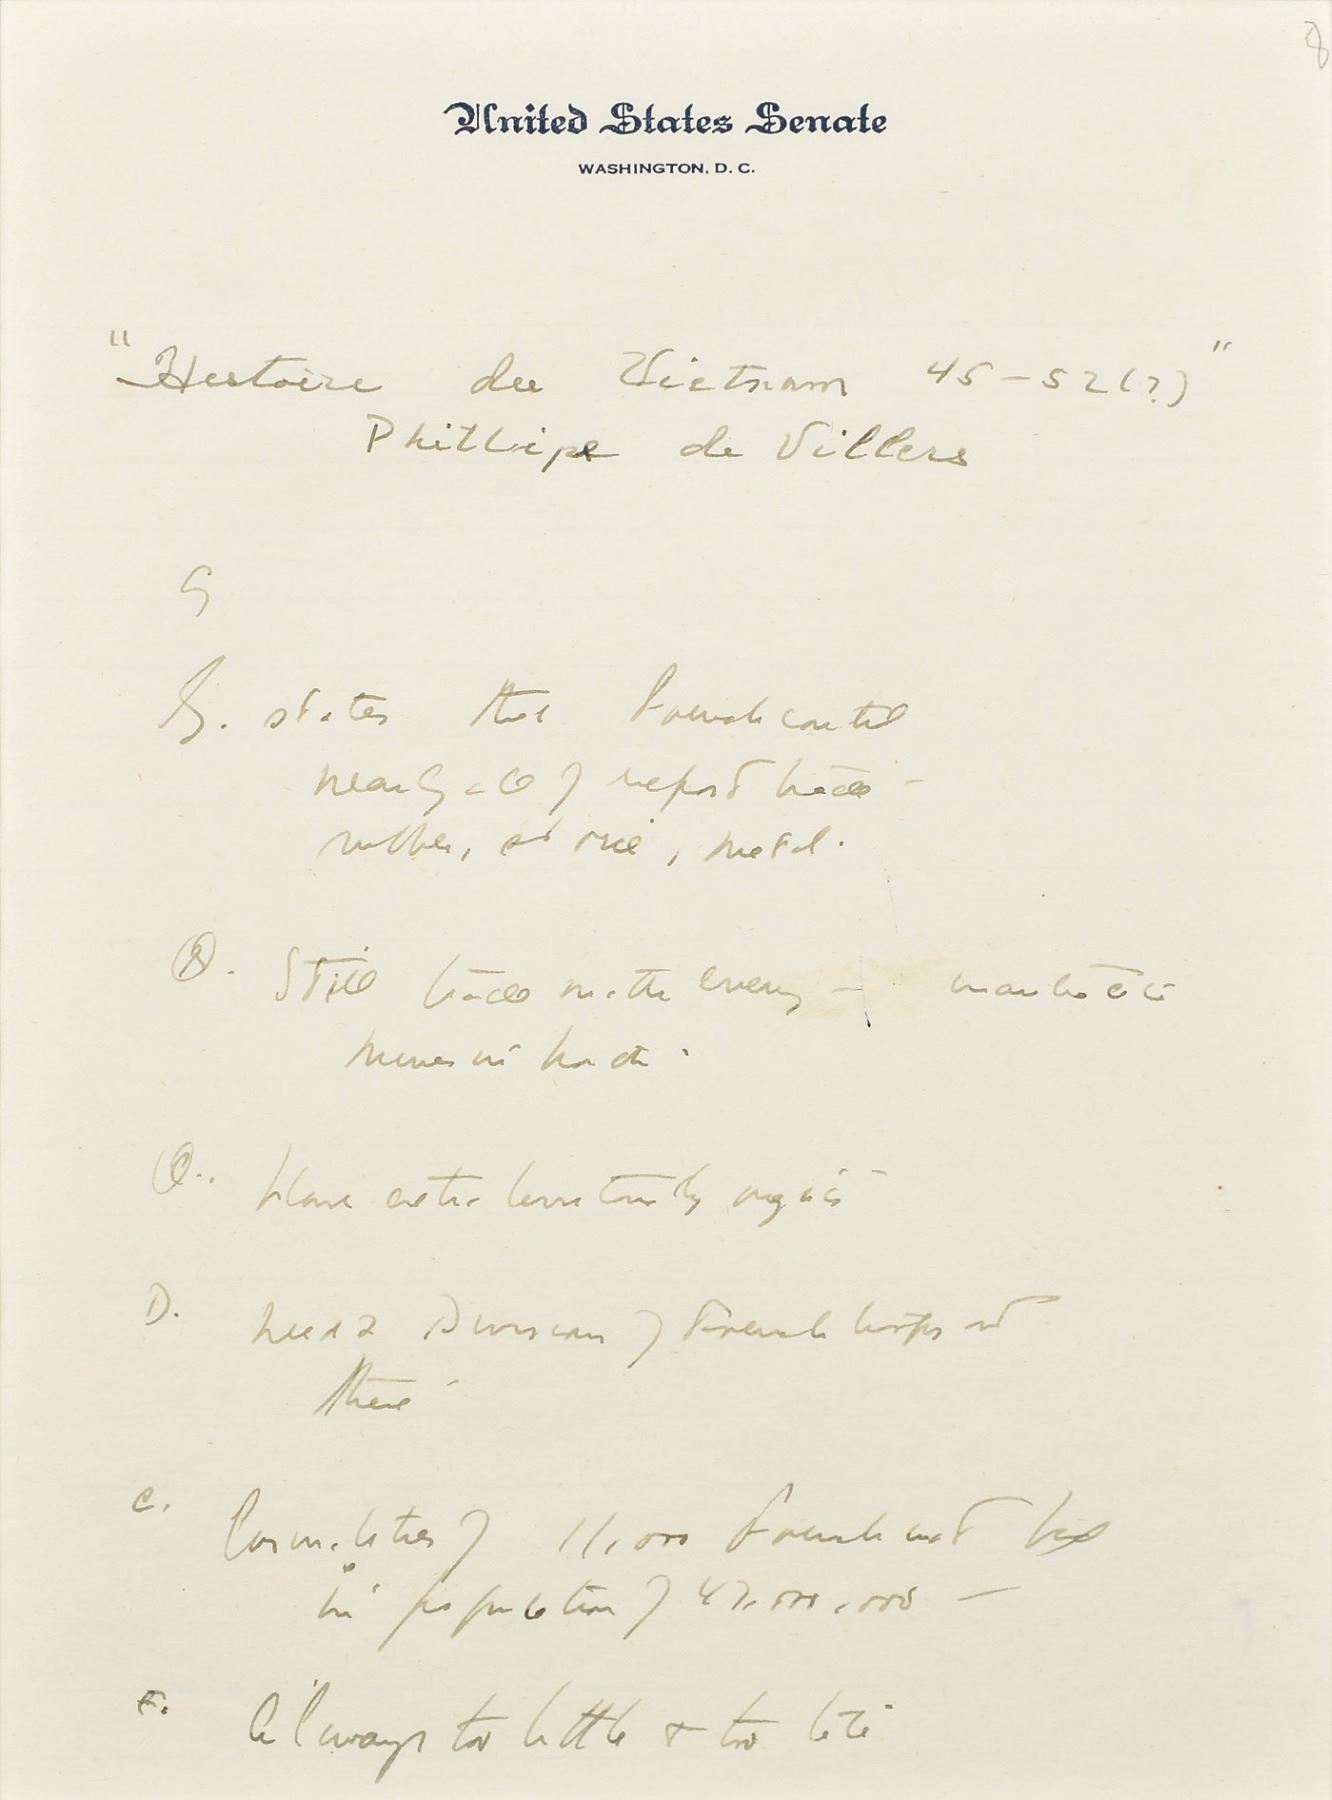 8
United States Senate
WASHINGTON, D. C.
"Histoire du Vietnam 45-52(?)"
Phillipe de Villers
G
G. states that French control
nearly all of export trade -
rubber, rice, metal.
B. Still trade with enemy -
mines in
C. Have extra territorially
D. Need 2 Divisions of French troops
there
E. Casualties of 11,000 French not
in population of 47,000,000 -
F. Always too little & too late